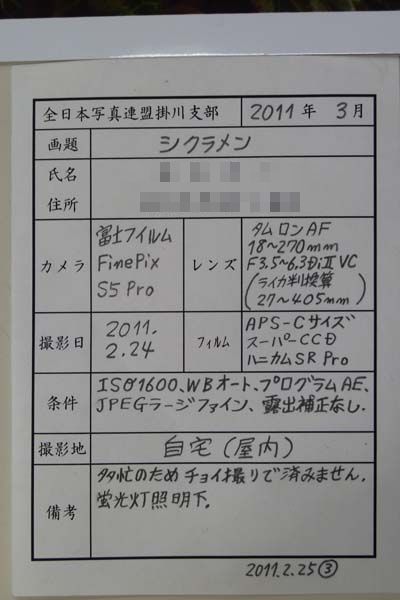 全日本写真連盟掛川支部 2011年 3月
画題 シクラメン
氏名
住所
カメラ 富士フイルム FinePix S5 Pro
レンズ タムロンAF 18~270mm F3.5~6.3DiⅡ VC (ライカ判換算 27~405mm)
撮影日 2011. 2.24
フィルム APS-Cサイズ スーパーCCD ハニカムSR Pro
条件 ISO1600、WBオート、プログラムAE、
JPEGラージファイン、露出補正なし.
撮影地 自宅(屋内)
備考 多忙のためチョイ撮りで済みません.
蛍光灯照明下.
2011.2.25③